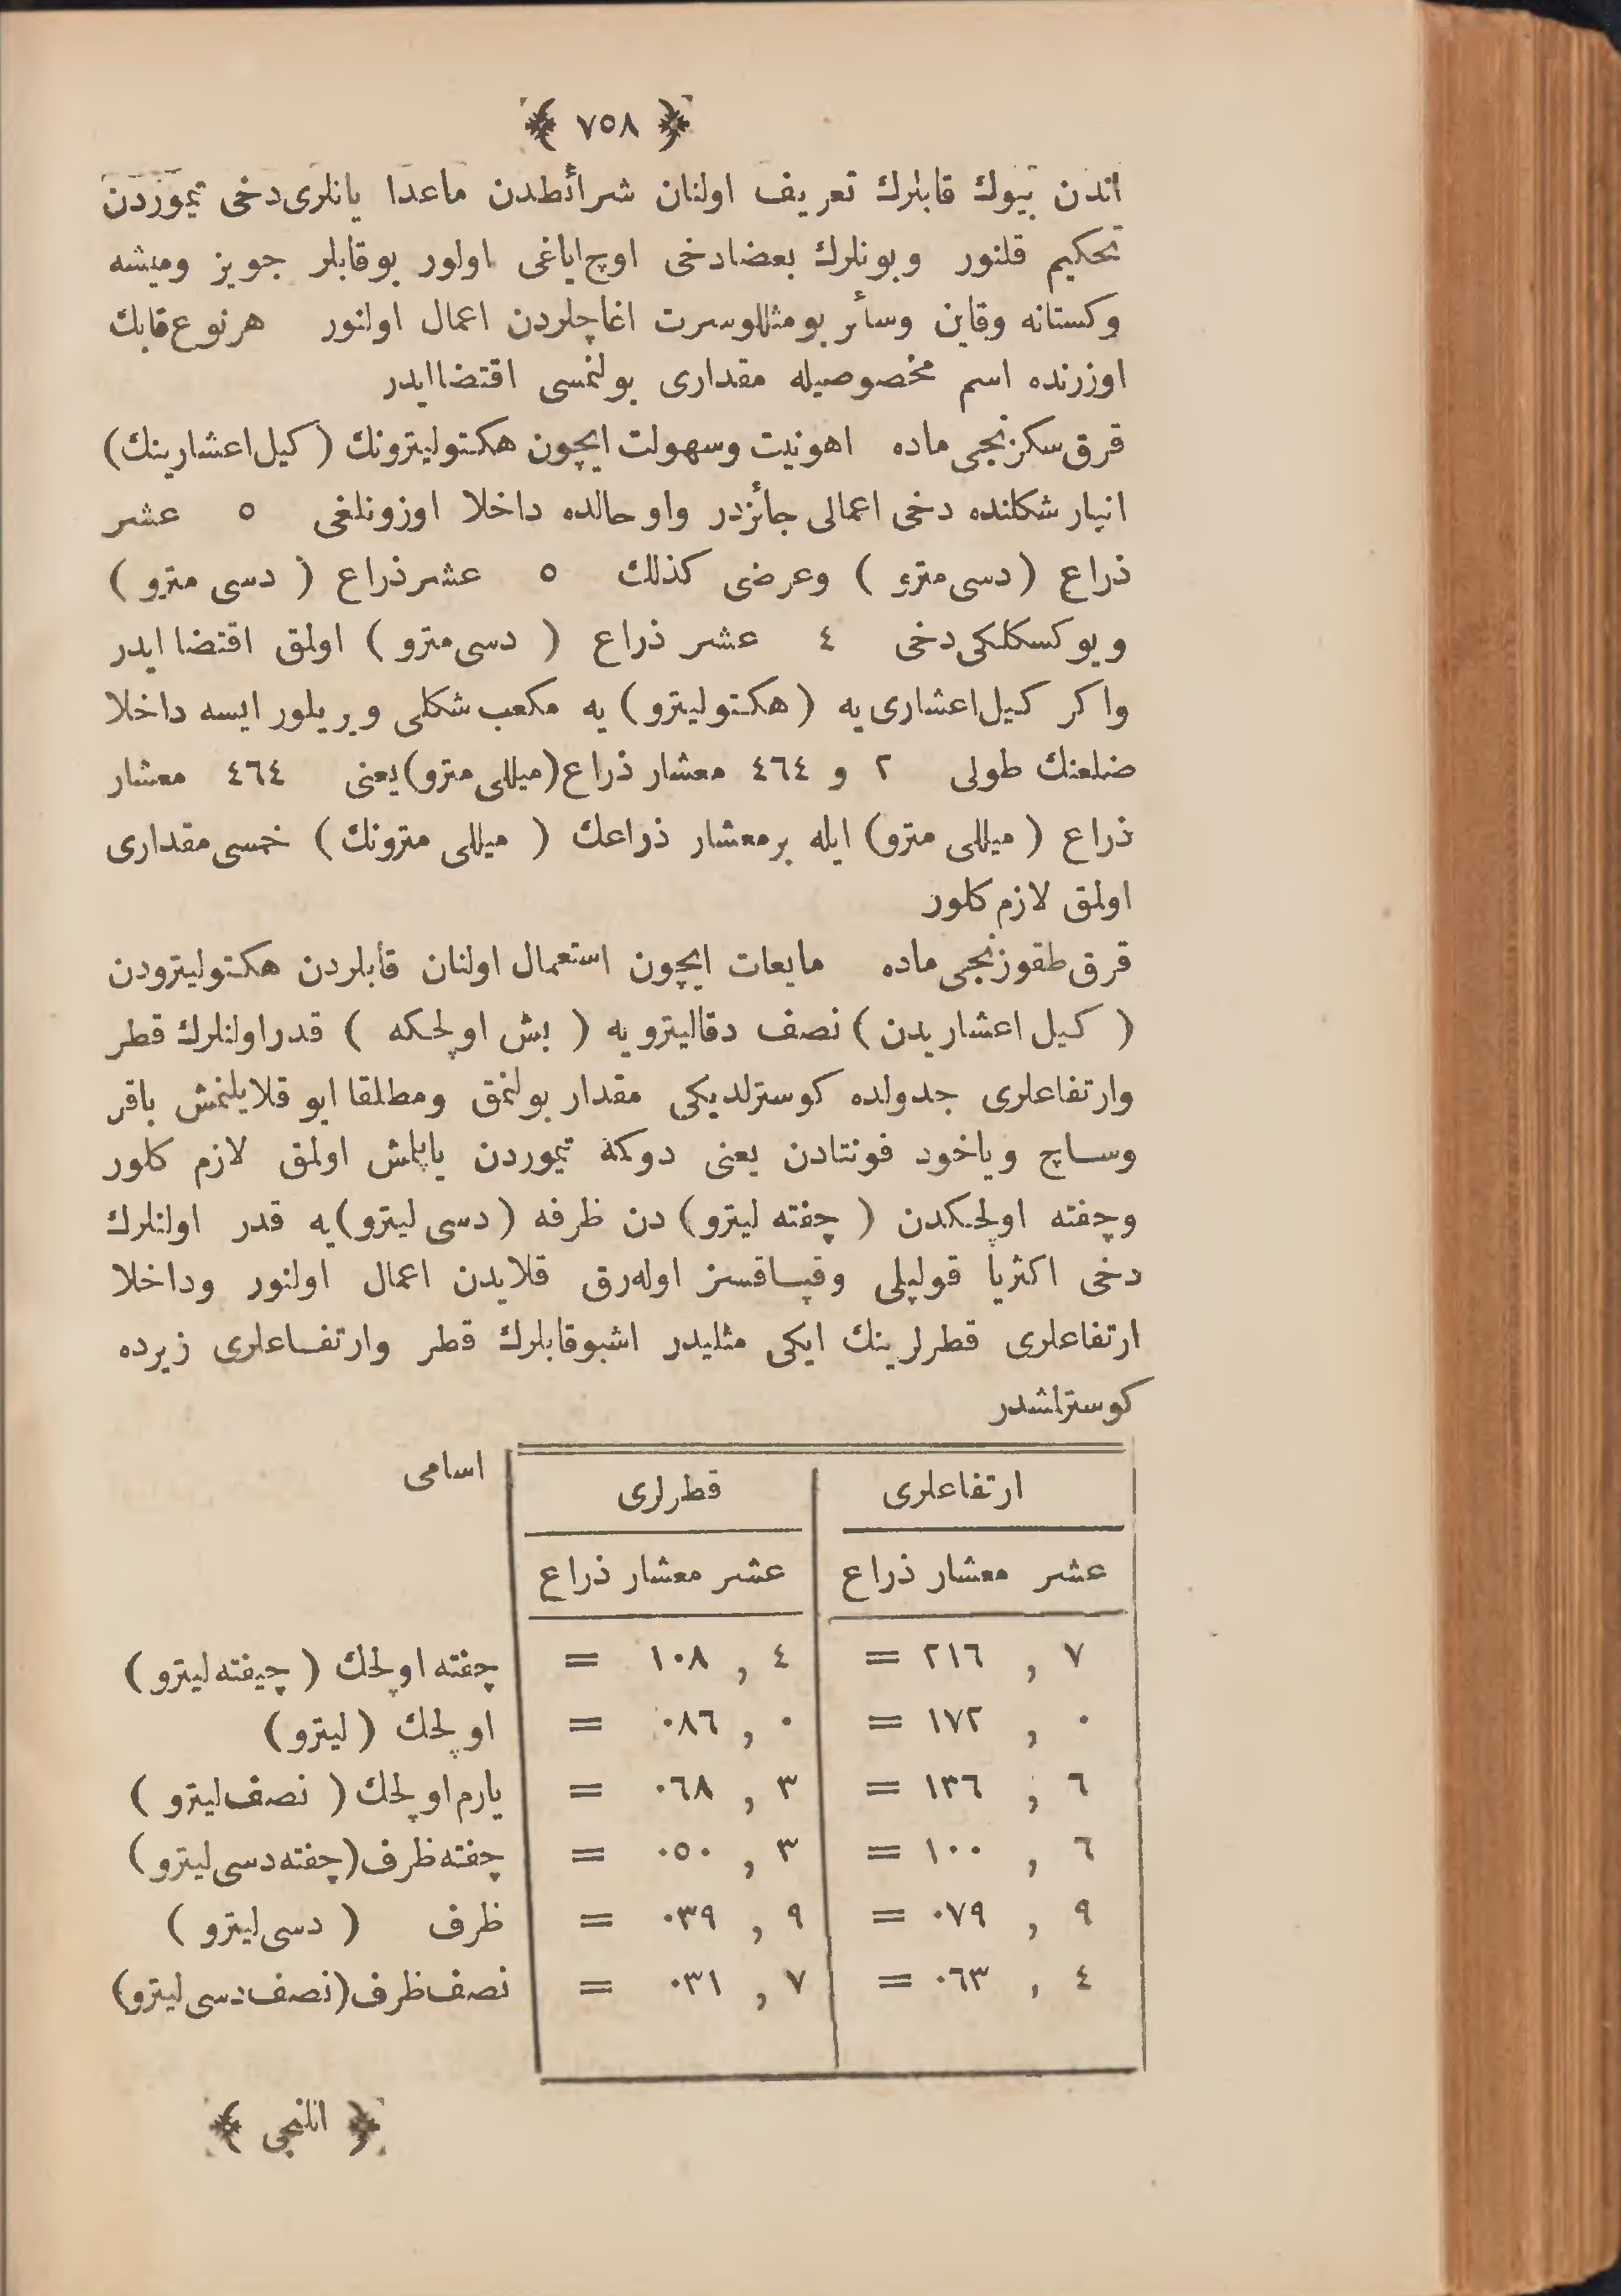 ﴿ ٧٥٨ ﴾
اندن بیوك قابلرك تعریف اولنان شرائطدن ماعدا یانلری دخی تیموردن
تحکیم قلنور وبونلرك بعضا دخی اوچ ایاغی اولور بوقابلر جویز ومیشه
وکستانه وقاین وسائر بومثللو سرت اغاچلردن اعمال اولنور هرنوع قابك
اوزرنده اسم مخصوصیله مقداری بولنمسی اقتضا ایدر
قرق سکزنجی ماده اهونیت وسهولت ایچون هکتولیترونك (کیل اعشارینك)
انبار شکلنده دخی اعمالی جائزدر واو حالده داخلا اوزونلغی ٥ عشر
ذراع (دسی مترو) وعرضی کذلك ٥ عشر ذراع (دسی مترو)
ویوکسکلکی دخی ٤ عشر ذراع (دسی مترو) اولمق اقتضا ایدر
واکر کیل اعشاری یه (هکتولیترو) یه مکعب شکلی ویریلور ایسه داخلا
ضلعنك طولی ٢ و ٤٦٤ معشار ذراع (میللی مترو) یعنی ٤٦٤ معشار
ذراع (میللی مترو) ایله برمعشار ذراعك (میللی مترونك) خمسی مقداری
اولمق لازم کلور
قرق طقوزنجی ماده مایعات ایچون استعمال اولنان قابلردن هکتولیترودن
(کیل اعشاریدن) نصف دقالیترویه (بش اولچکه) قدر اولنلرك قطر
وارتفاعلری جدولده کوسترلدیکی مقدار بولنمق ومطلقا ایو قلایلنمش باقر
وساچ ویاخود فونتادن یعنی دوکمه تیموردن یاپلمش اولمق لازم کلور
وچفته اولچکدن (چفته لیترو) دن ظرفه (دسی لیترو) یه قدر اولنلرك
دخی اکثریا قولپلی وقپاقسز اوله رق قلایدن اعمال اولنور وداخلا
ارتفاعلری قطرلرینك ایکی مثلیدر اشبو قابلرك قطر وارتفاعلری زیرده
کوسترلمشدر
ارتفاعلری قطرلری اسامی
عشر معشار ذراع عشر معشار ذراع
٧ , ٢١٦ = ٤ , ١٠٨ = چفته اولچك (چیفته لیترو)
٠ , ١٧٢ = ٠ , ٠٨٦ = اولچك (لیترو)
٦ , ١٣٦ = ٣ , ٠٦٨ = یارم اولچك (نصف لیترو)
٦ , ١٠٠ = ٣ , ٠٥٠ = چفته ظرف (چفته دسی لیترو)
٩ , ٠٧٩ = ٩ , ٠٣٩ = ظرف (دسی لیترو)
٤ , ٠٦٣ = ٧ , ٠٣١ = نصف ظرف (نصف دسی لیترو)
﴿ اللنجی ﴾